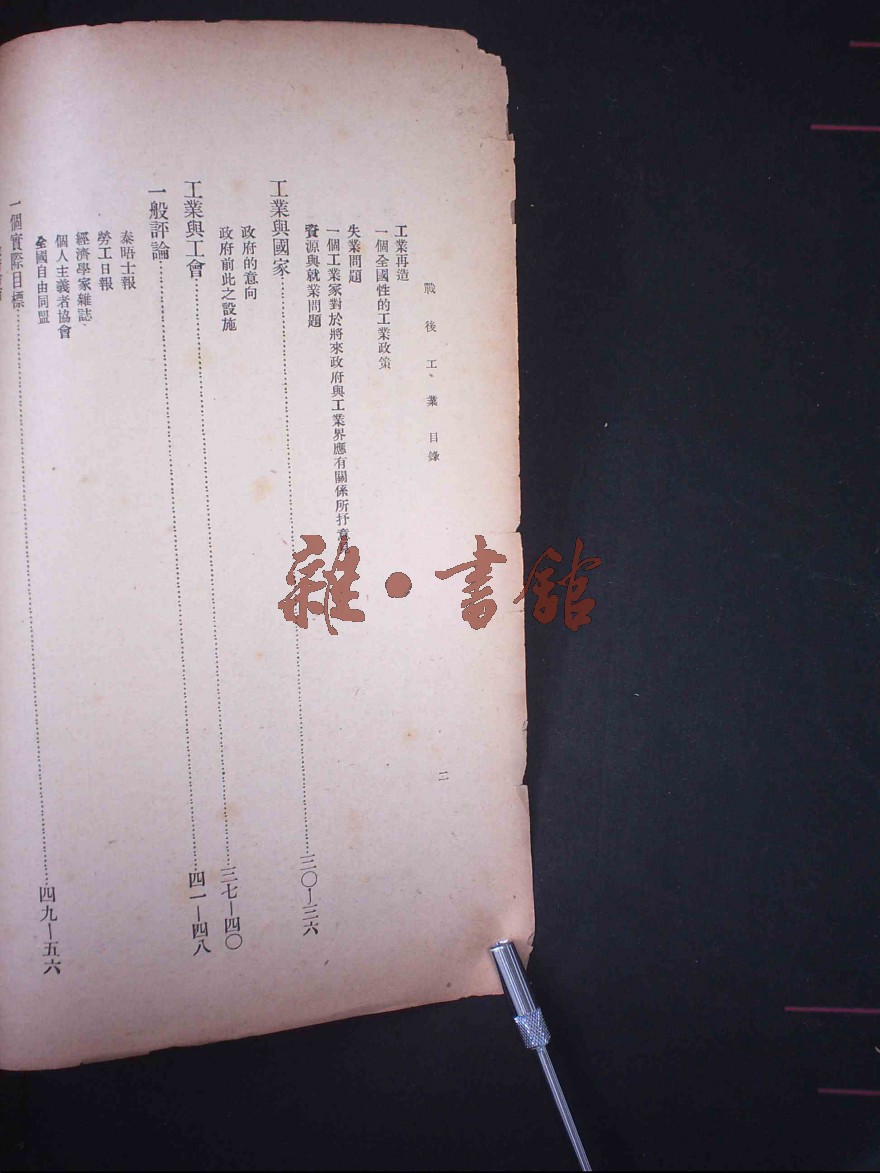 戰後工業目錄 二
工業再造
一個全國性的工業政策
失業問題
一個工業家對於將來政府與工業界應有關係所抒意見
資源與就業問題
工業與國家……三〇—三六
政府的意向
政府前此之設施
工業與工會……三七—四〇
一般評論……四一—四八
泰晤士報
勞工日報
經濟學家雜誌
個人主義者協會
全國自由同盟
一個實際目標……四九—五六
雜·書館